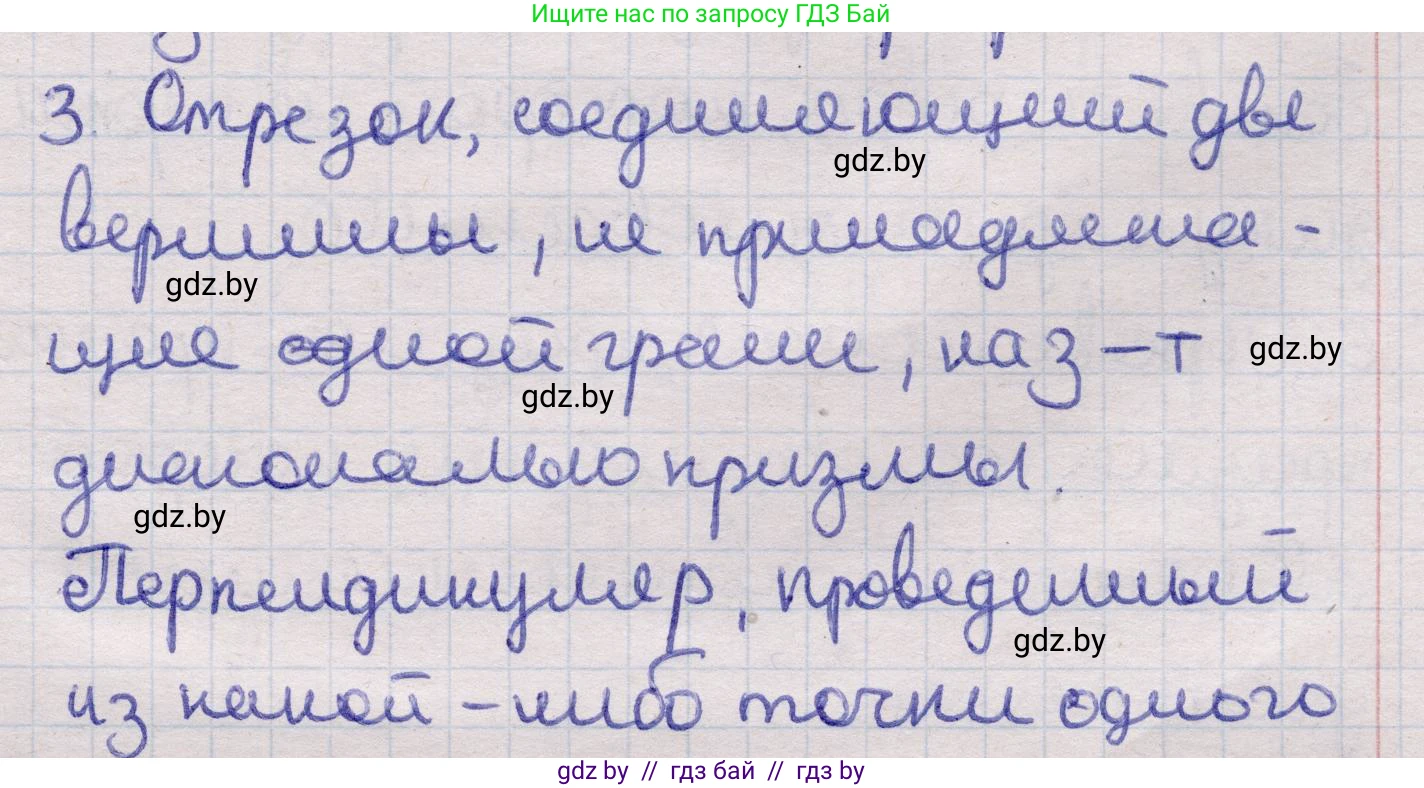 Ищите нас по запросу ГДЗ Бай
3. Отрезок, соединяющий две
gdz.by
вершины, не принадлежа-
gdz.by
щие одной грани, наз-т
gdz.by
gdz.by
диагональю призмы.
gdz.by
Перпендикуляр, проведенный
gdz.by
из какой-либо точки одного
gdz.by // гдз бай // гдз by